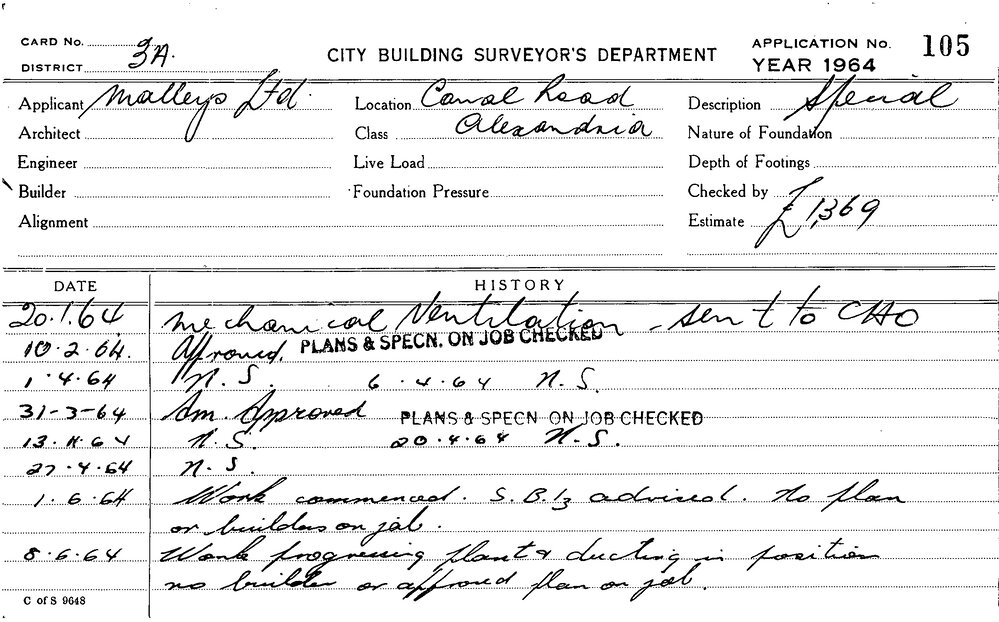 CARD No. CITY BUILDING SURVEYOR'S DEPARTMENT APPLICATION No. 105
DISTRICT 3A. YEAR 1964
Applicant Malleys Ltd. Location Canal Road Description Special
Architect Class Alexandria Nature of Foundation
Engineer Live Load Depth of Footings
Builder Foundation Pressure Checked by
Alignment Estimate £1,369
DATE HISTORY
20.1.64 Mechanical Ventilation - sent to CHO
10.2.64. Approved. PLANS & SPECN. ON JOB CHECKED
1.4.64 N.S. 6.4.64 N.S.
31-3-64 Am. Approved PLANS & SPECN ON JOB CHECKED
13.4.64 N.S. 20.4.64 N.S.
27.4.64 N.S.
1.6.64 Work commenced. S.B. advised. No plan
or builders on job.
8.6.64 Work progressing plant & ducting in position
no builder or approved plan on job.
C of S 9648